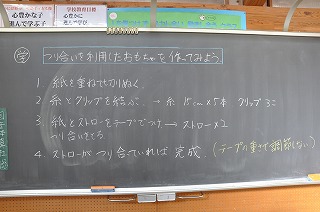 心豊かな子
進んで学ぶ子
学校教育目標
心豊かに
進んで学び
つり合いを利用したおもちゃを作ってみよう
1 紙を重ねて切りぬく
2 糸とクリップを結ぶ → 糸 15cm×5本 クリップ3こ
3 紙とストローをテープでつけ → ストロー×2
つり合いをとる
4. ストローがつり合っていれば 完成 (テープの重さで調節しない)